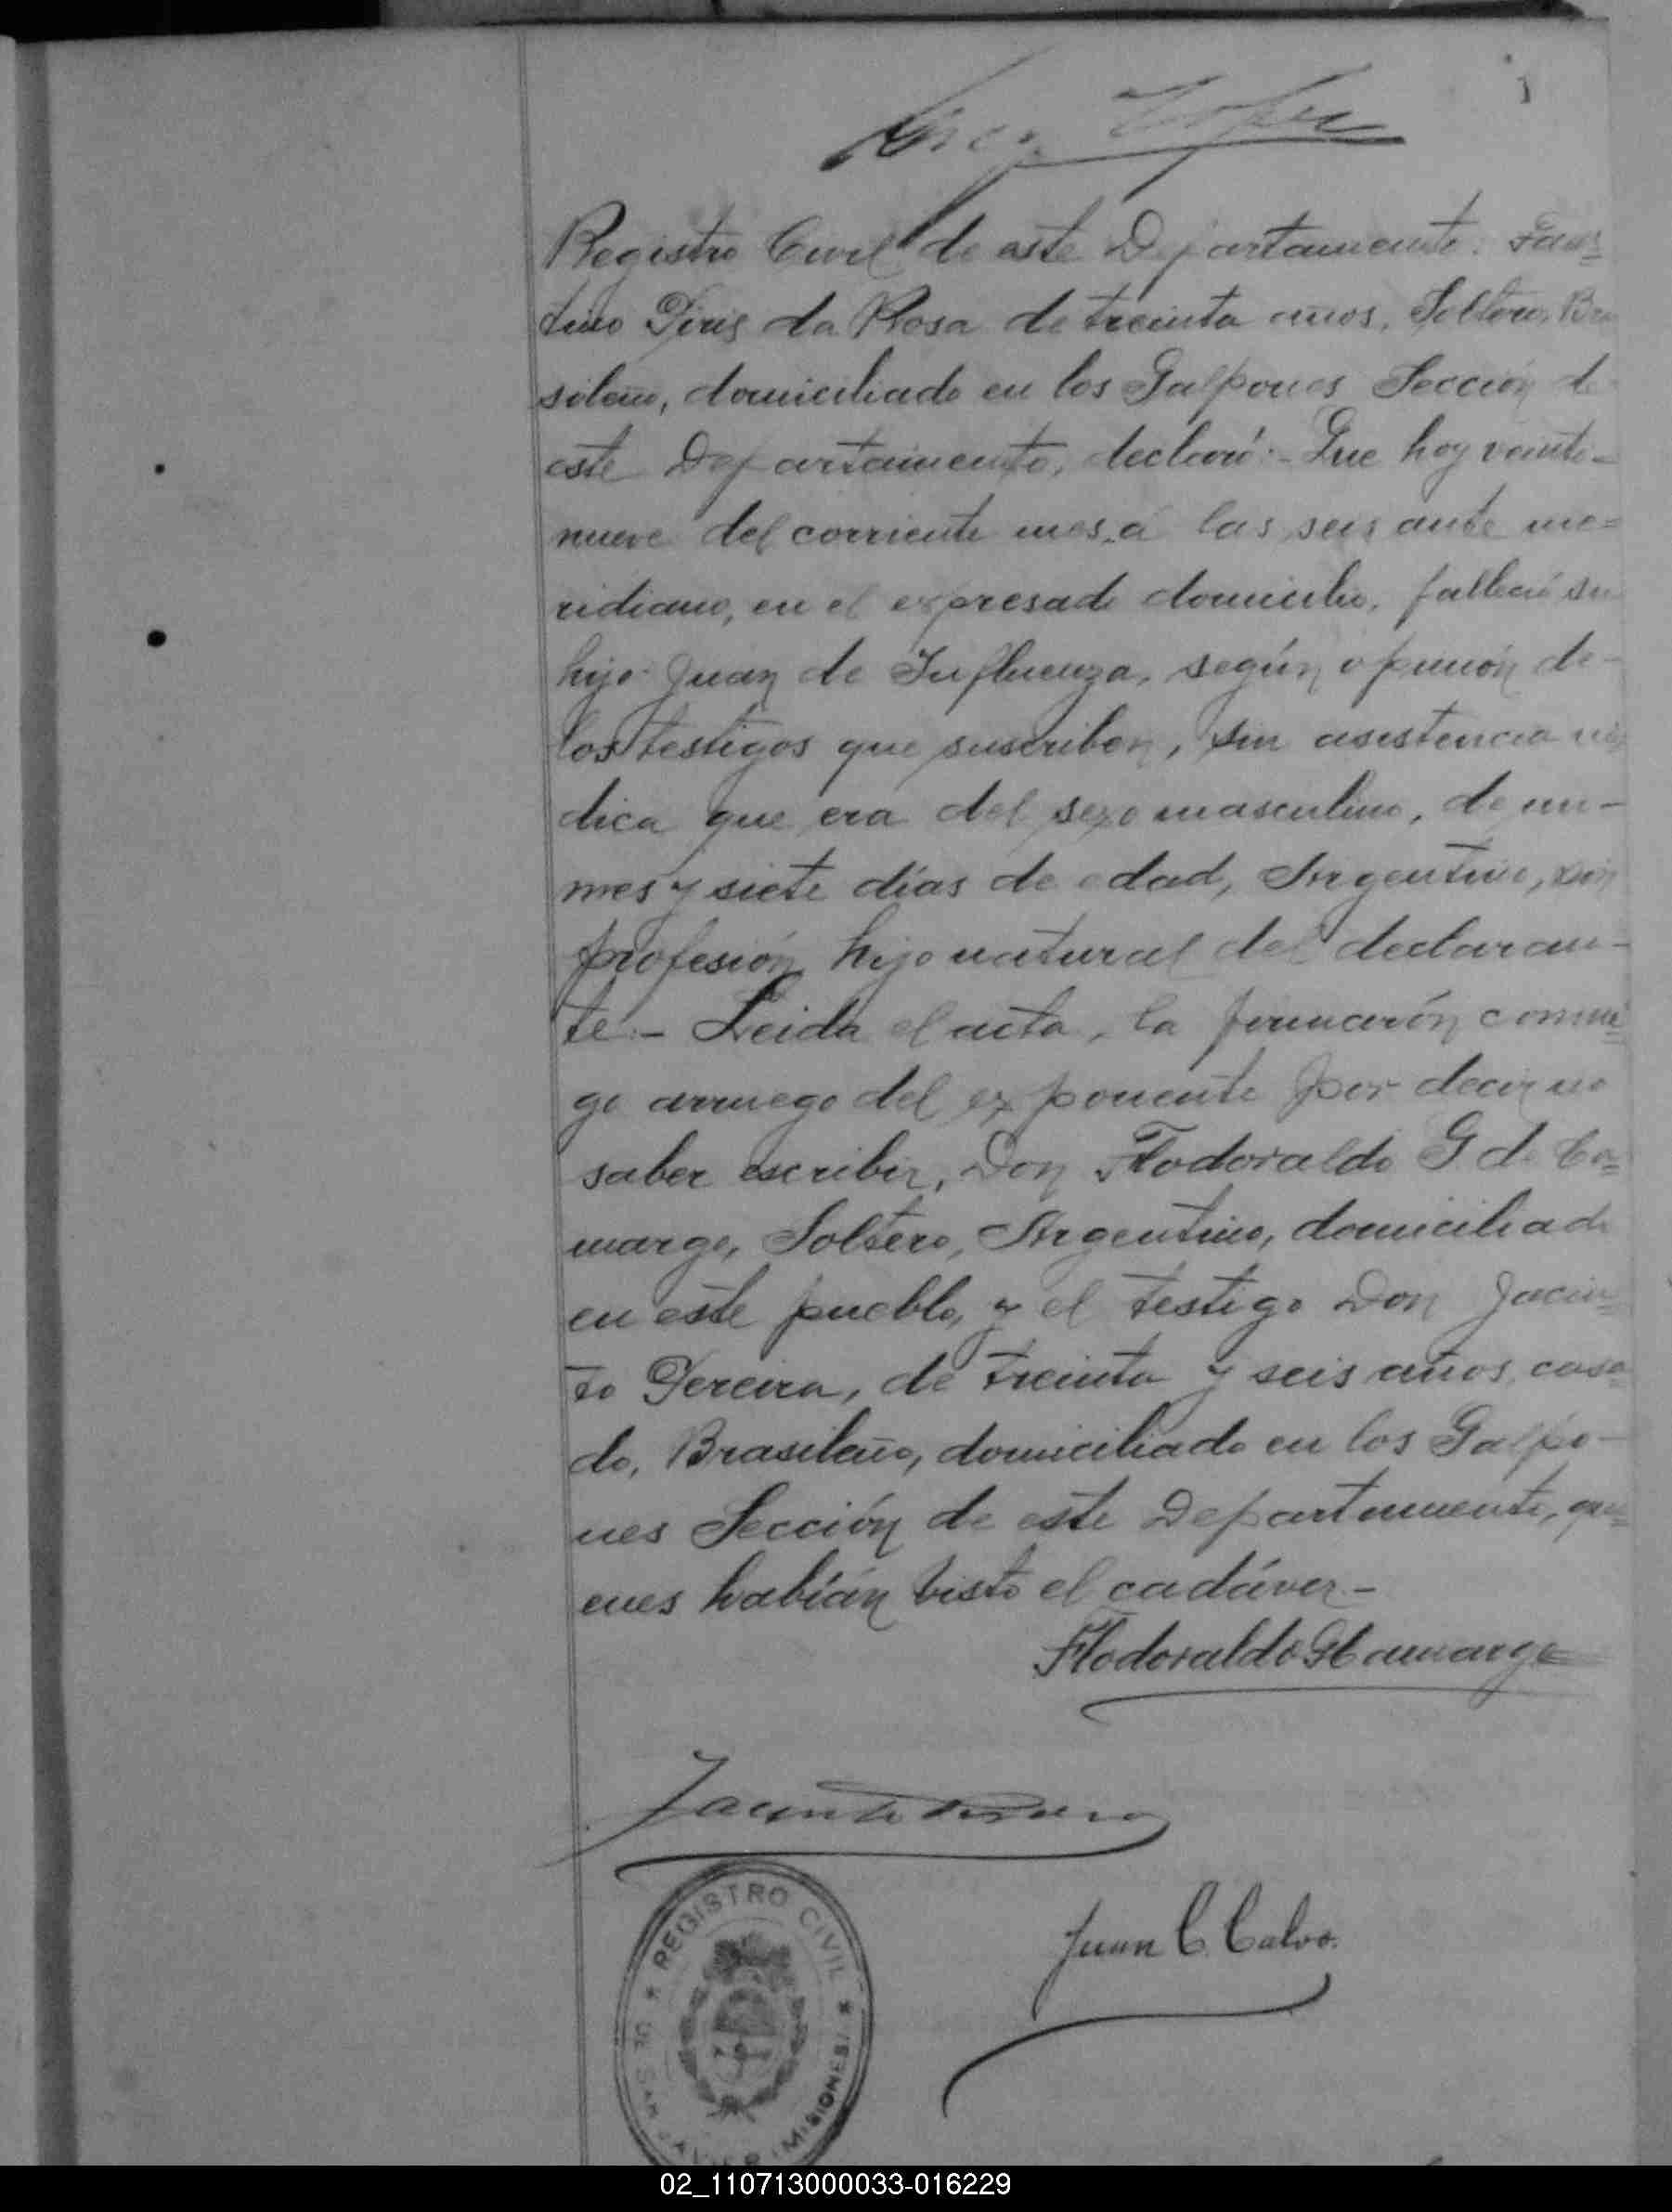 Registro Civil de este Departamento: Faus=
tino Piris da Rosa de treinta años, Soltero, Bra
sileño, domiciliado en los Galpones Sección de
este Departamento, declaró:- Que hoy veinte-
nueve del corriente mes, á las seis ante me=
ridiano, en el expresado domicilio, falleció su
hijo Juan de Influenza, según opinión de-
los testigos que suscriben, sin asistencia mé
dica que era del sexo masculino, de un-
mes y siete días de edad, Argentino, sin
profesión, hijo natural del declaran-
te.- Leida el acta, la firmarón conmi=
go arruego del exponente por decir no
saber escribir, Don Flodoraldo G de Ca=
margo, Soltero, Argentino, domiciliado
en este pueblo, y el testigo Don Jacin=
to Pereira, de treinta y seis años, casa=
do, Brasileño, domiciliado en los Galpo-
nes Sección de este Departamento, qui=
enes habían visto el cadáver-
Flodoraldo G Camargo
Jacinto Pereira
Juan C. Calvo.
* REGISTRO CIVIL *
DE SAN JAVIER (MISIONES)
02_110713000033-016229